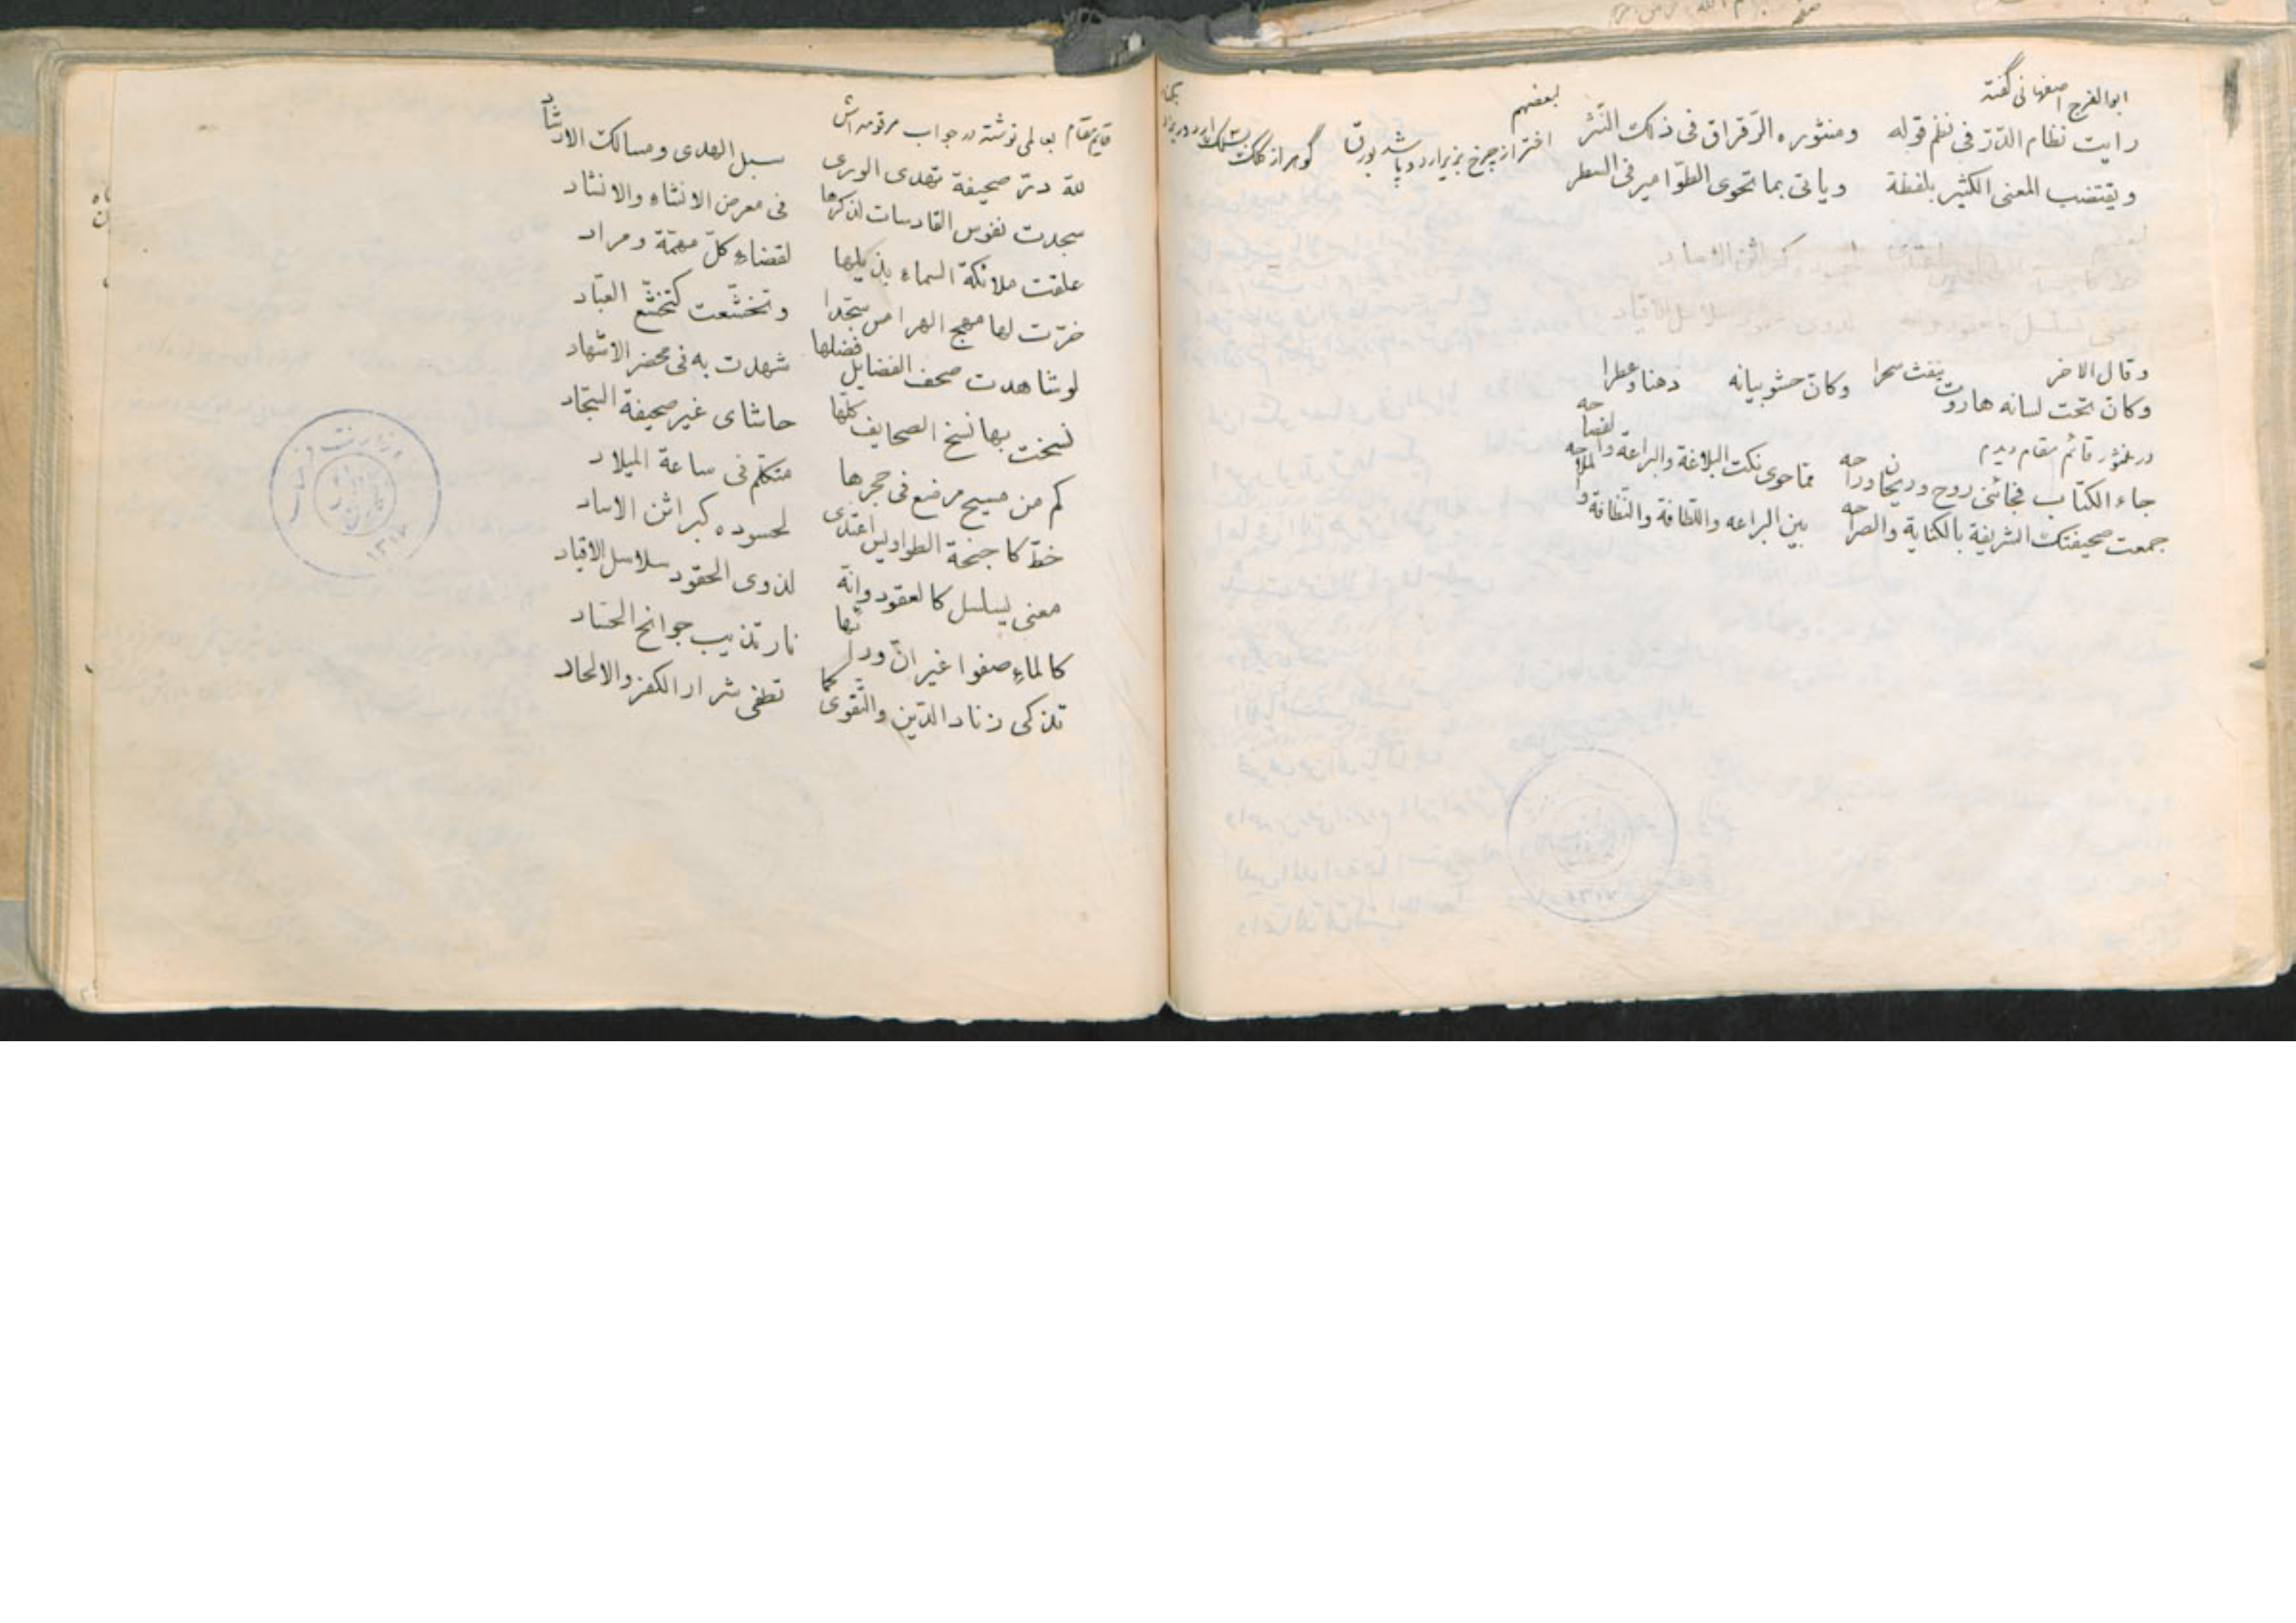 ابوالفرج اصفهانی گفته
رایت نظام الدّرّ فی نظم قوله ومنثوره الرّقراق فی ذلک النّثر
ویقتضب المعنی الکثیر بلفظة ویاتی بما تحوی الطّوامیر فی السطر
لبعضهم
اختر از چرخ بزیر آرد و پاشد بورق گوهر از کلک
وقال الاخر
وکانّ تحت لسانه هاروت ینفث سحرا وکانّ حشو بیانه دهنا وعطرا
در منثور قائم مقام دیدم
جاء الکتاب فجائنی روح وریحان وراحه مما حوی نکت البلاغة والبراعة والفصاحه
جمعت صحیفتک الشریفة بالکنایة والصراحه بین البراعه واللطافة والنظافة والملاحه
قایم مقام بعالمی نوشته در جواب مرقومه اش
لله درّ صحیفة تهدی الوری سبل الهدی ومسالک الارشاد
سجدت نفوس القادسات لذکرها فی معرض الانشاء والانشاد
علقت ملائکة السماء بذیلها لقضاء کلّ مهمّة ومراد
خرّت لها مهج الهرامس سجّدا وتخشّعت کتخشّع العبّاد
لو شاهدت صحف الفضایل فضلها شهدت به فی محضر الاشهاد
نسخت بها نسخ الصحایف کلّها حاشای غیر صحیفة السّجّاد
کم من مسیح مرضع فی حجرها متکلّم فی ساعة المیلاد
خطّ کاجنحة الطواویس اغتدی لحسوده کبراثن الاساد
معنی یسلسل کالعقود وانّه لذوی الحقود سلاسل الاقیاد
کالماء صفوا غیر انّ ودادها نار تذیب جوانح الحسّاد
تذکی زناد الدّین والتّقوی کما تطفی شرار الکفر والالحاد